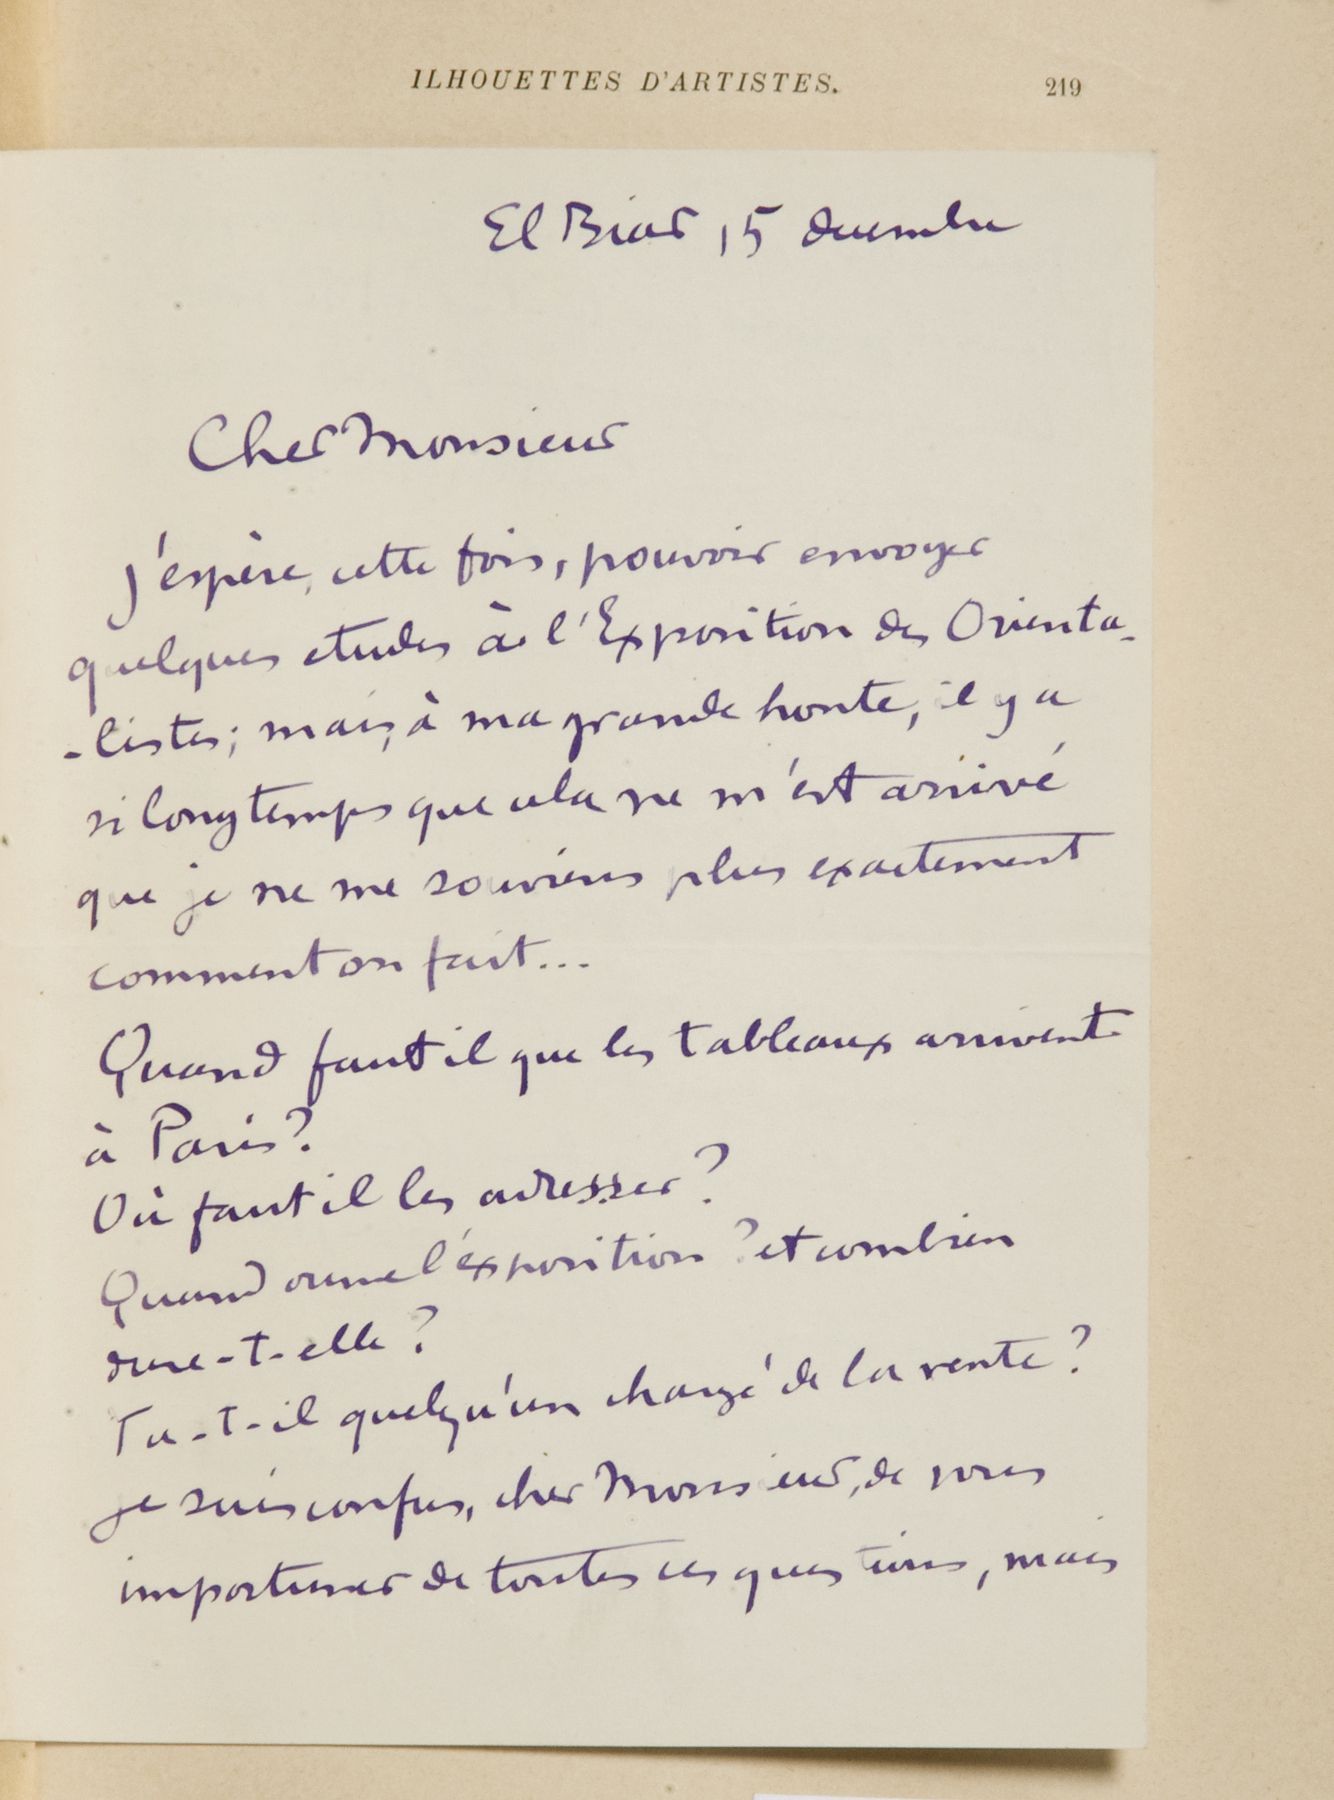 ILHOUETTES D'ARTISTES.
219
El Biar 15 decembre
Cher Monsieur
J'espère, cette fois, pouvoir envoyer
quelques etudes à l'Exposition des Orienta-
-listes; mais, à ma grande honte, il y a
si longtemps que cela ne m'est arrivé
que je ne me souviens plus exactement
comment on fait...
Quand faut il que les tableaux arrivent
à Paris?
Où faut il les adresser?
Quand ouvre l'exposition? et combien
dure-t-elle?
Y a-t-il quelqu'un chargé de la vente?
je suis confus, cher Monsieur, de vous
importuner de toutes ces questions, mais